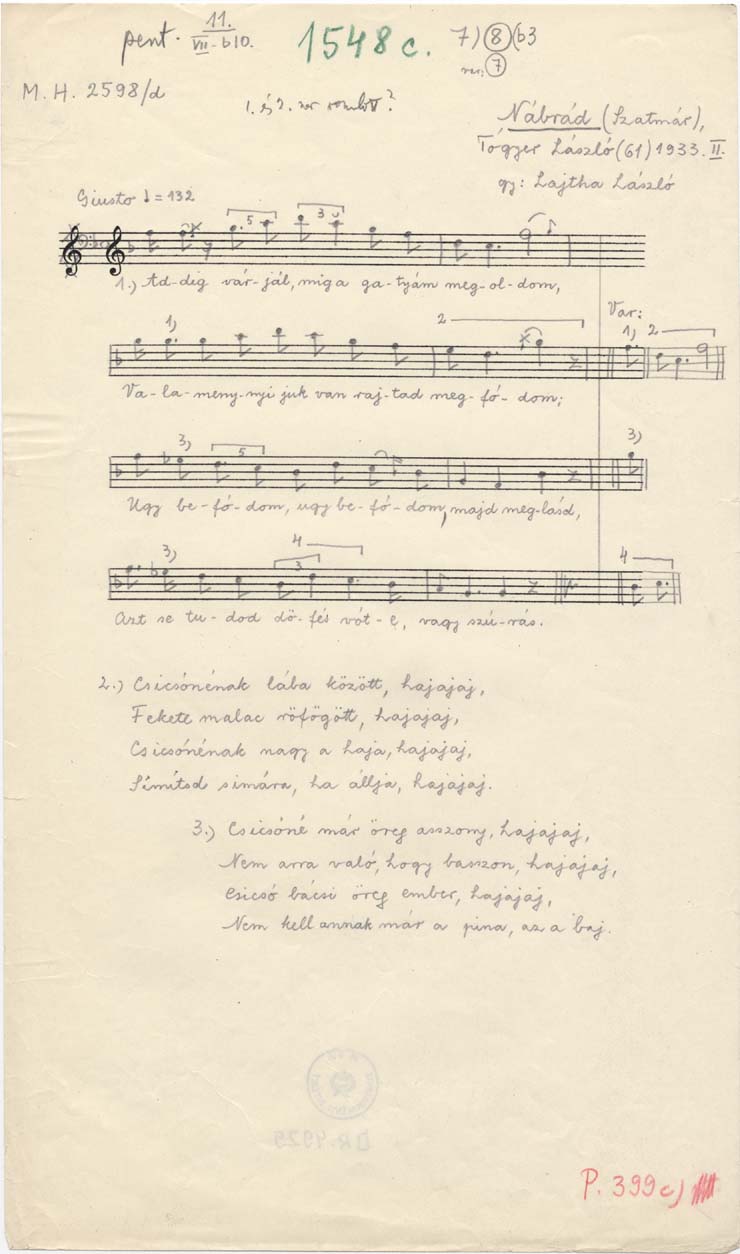 pent. 11.
VII-b10.
1548 c.
7) 8 (b3
7
M. H. 2598/d
1. és 2. sor romlott?
Nábrád (Szatmár),
Tógyer László (61) 1933. II.
gy: Lajtha László
Giusto ♩ = 132
5 3
1.) Ad-dig vár-jál, mig a ga-tyám meg-ol-dom,
Var:
1) 2 1) 2
Va-la-meny-nyi juk van raj-tad meg-fó-dom;
3) 5 3)
Ugy be-fó-dom, ugy be-fó-dom, majd meg-lásd,
3) 4 3 4
Azt se tu-dod dö-fés vót-e, vagy szú-rás.
2.) Csicsónénak lába között, hajajaj,
Fekete malac röfögött, hajajaj,
Csicsónénak nagy a haja, hajajaj,
Símítsd simára, ha állja, hajajaj.
3.) Csicsóné már öreg asszony, hajajaj,
Nem arra való, hogy basszon, hajajaj,
Csicsó bácsi öreg ember, hajajaj,
Nem kell annak már a pina, az a baj.
DR. 4925
P. 399c)